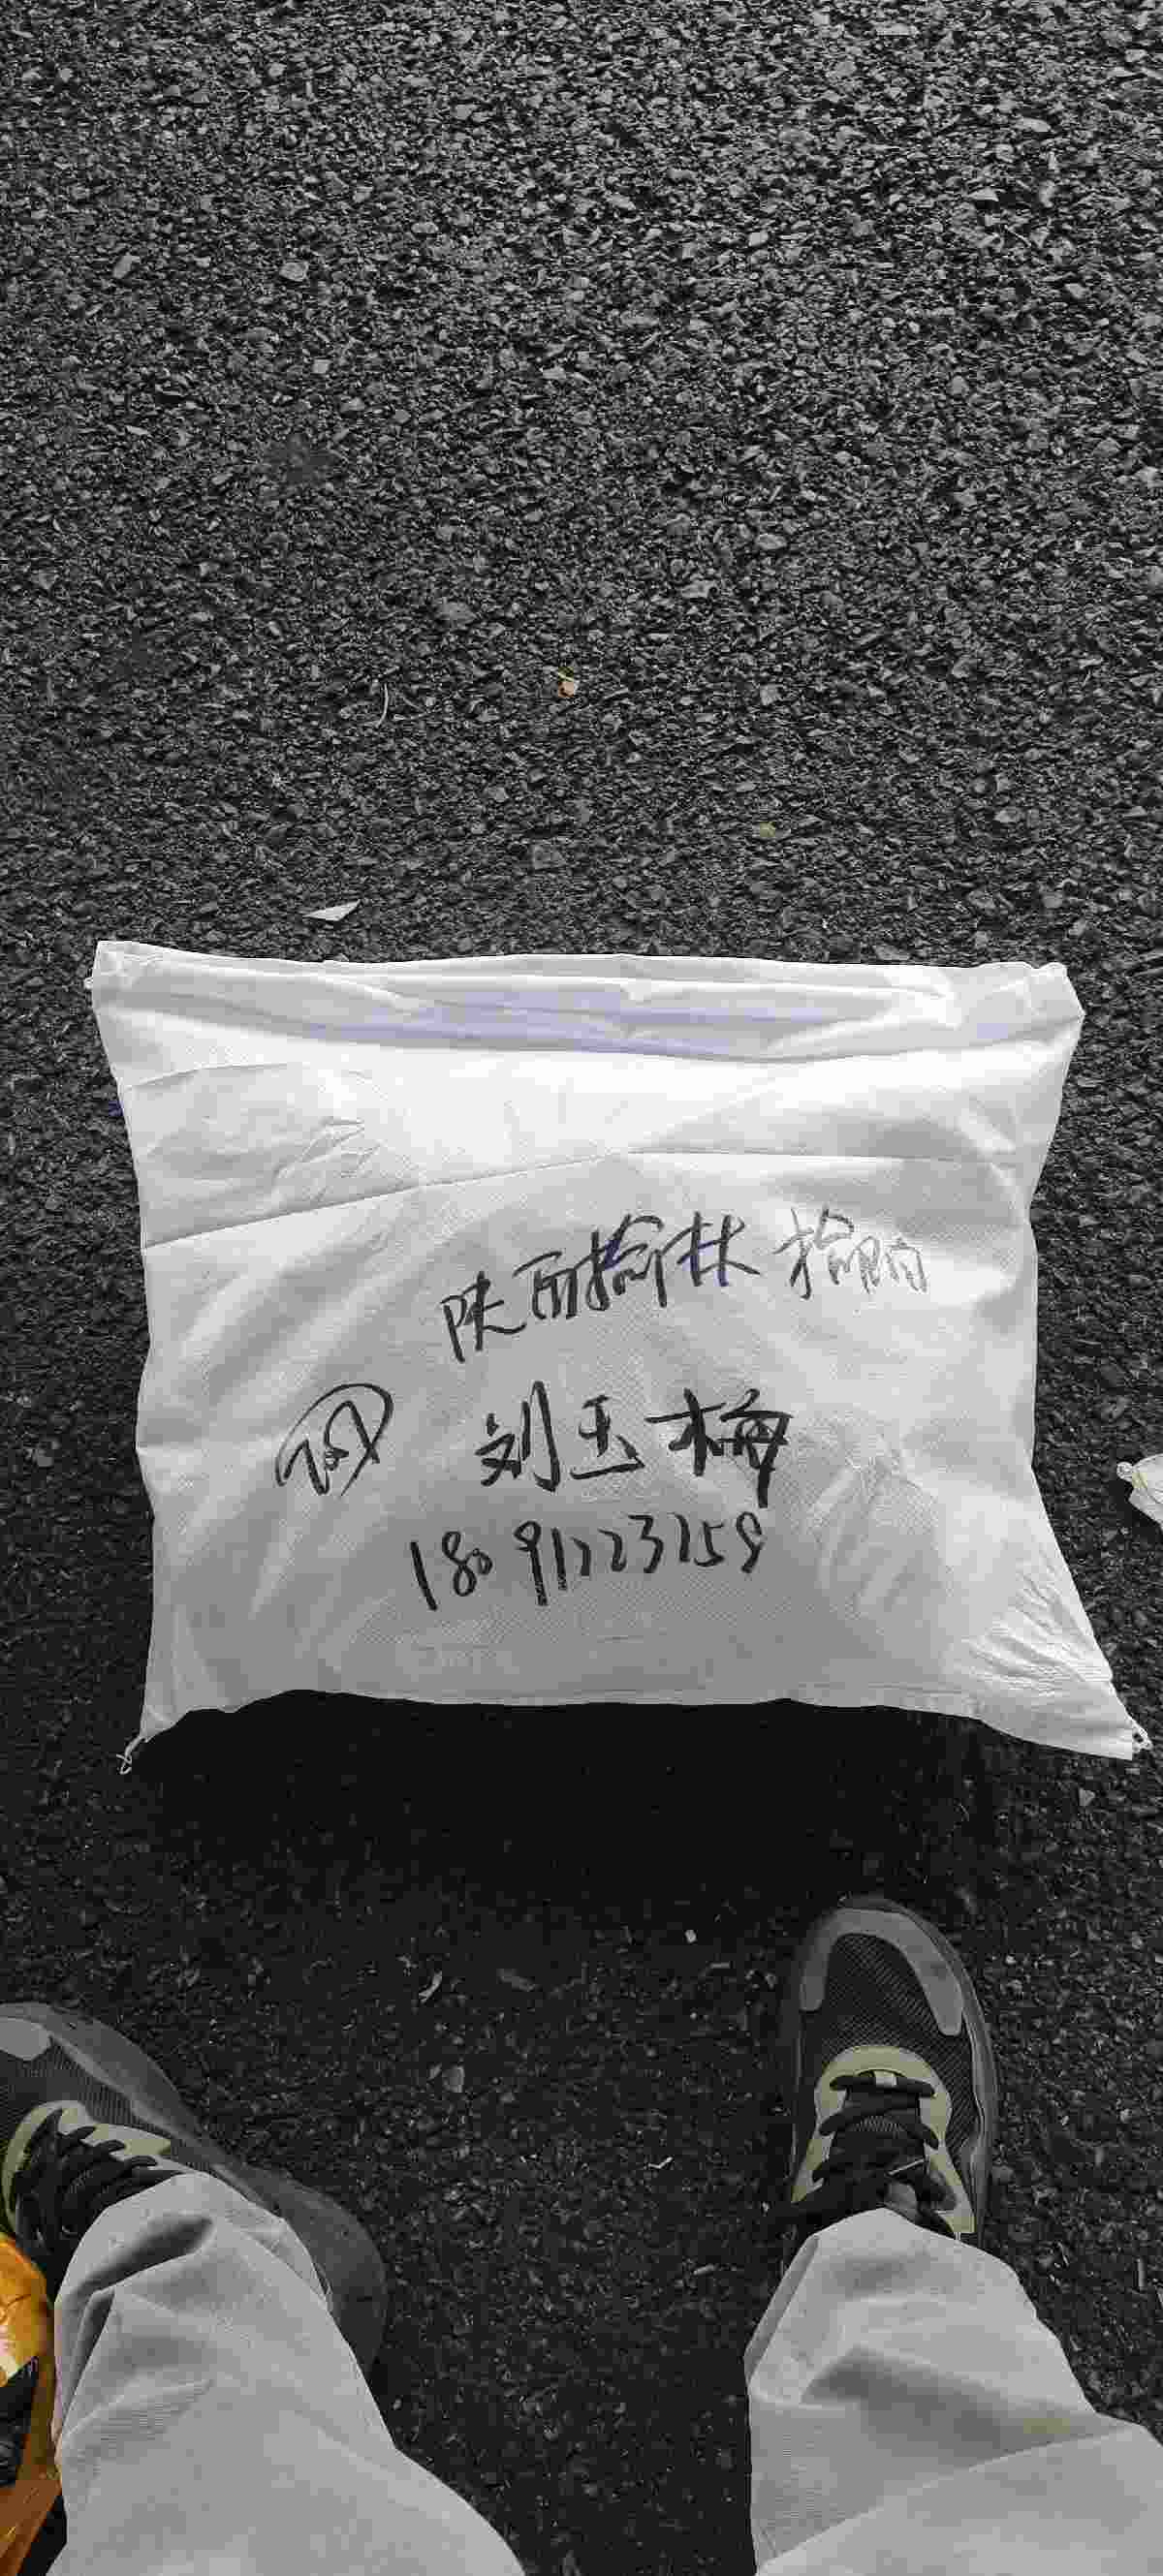 陕西榆林 榆阳
刘玉梅
18091223259